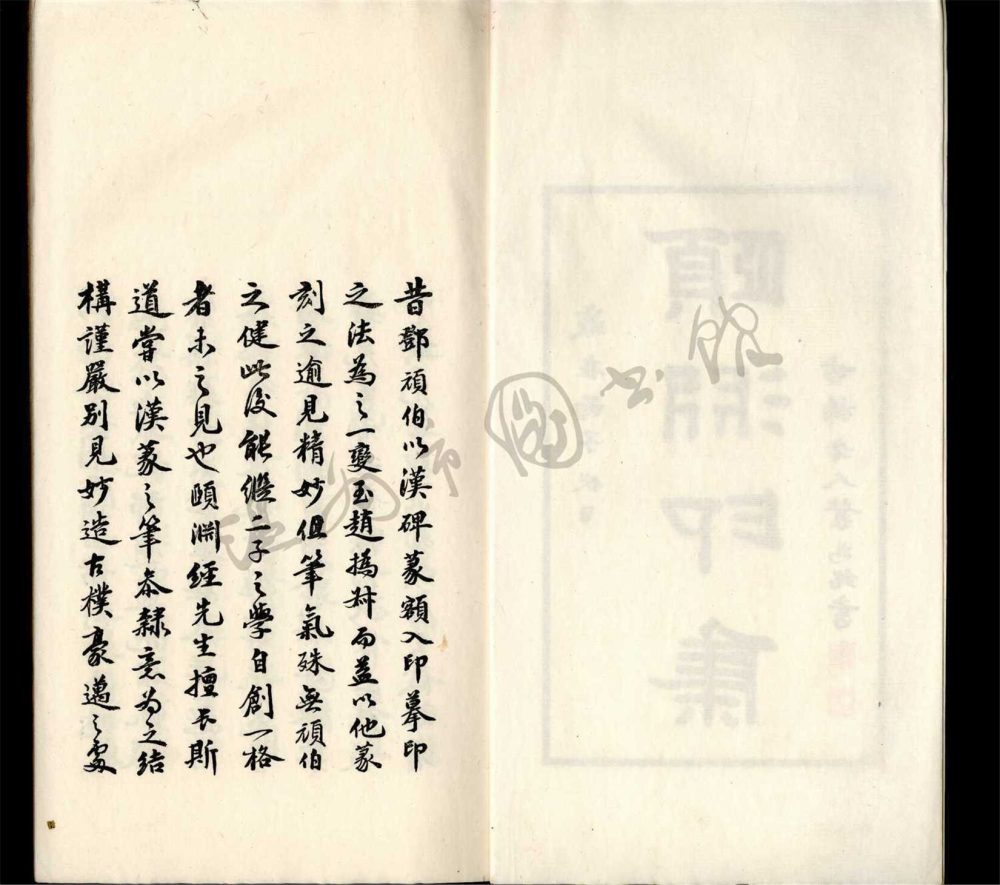 頤淵印集
昔鄧頑伯以漢碑篆額入印摹印
之法為之一變至趙撝叔而益以他篆
刻之逾見精妙但筆氣殊無頑伯
之健此後能繼二子之學自創一格
者未之見也頤淵經先生擅長斯
道嘗以漢篆之筆參隸意為之結
構謹嚴別見妙造古樸豪邁之處
温州市图书馆